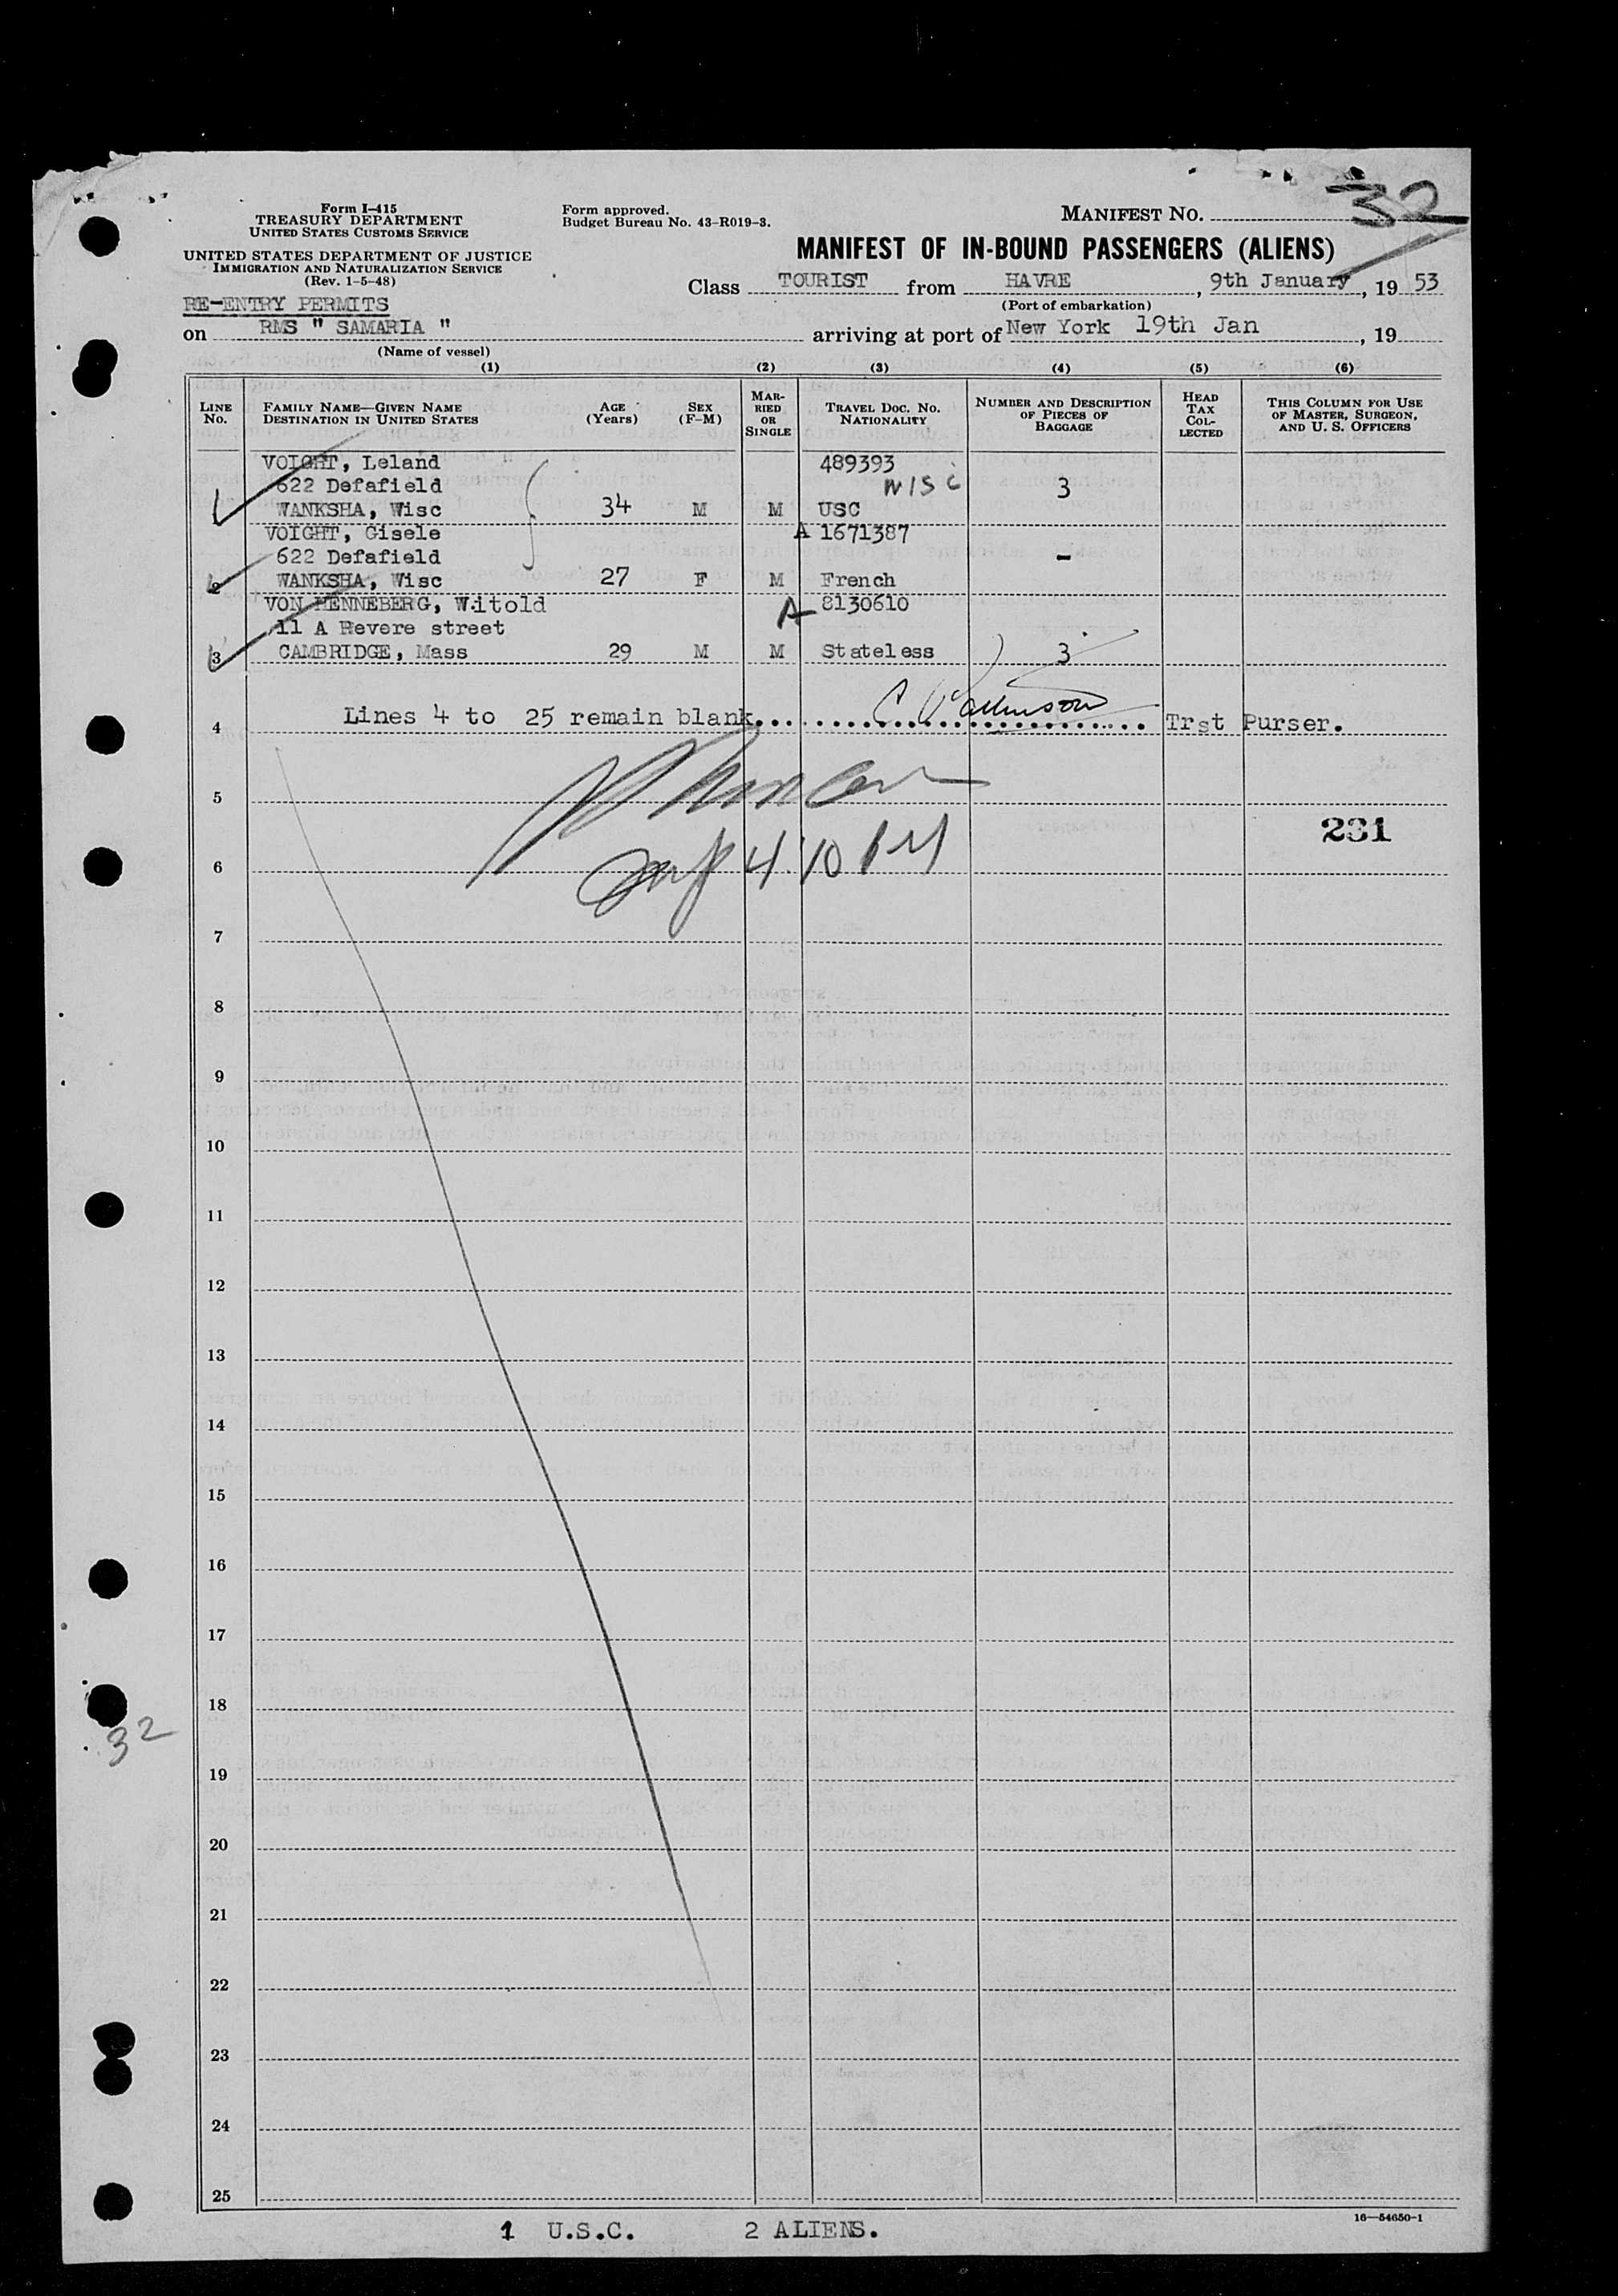 32
Form I-415
TREASURY DEPARTMENT
UNITED STATES CUSTOMS SERVICE
Form approved.
Budget Bureau No. 43-R019-3.
MANIFEST NO.
UNITED STATES DEPARTMENT OF JUSTICE
IMMIGRATION AND NATURALIZATION SERVICE
(Rev. 1-5-48)
MANIFEST OF IN-BOUND PASSENGERS (ALIENS)
Class TOURIST from HAVRE, 9th January, 19 53
(Port of embarkation)
RE-ENTRY PERMITS
on RMS " SAMARIA " arriving at port of New York 19th Jan, 19
(Name of vessel)
(1) (2) (3) (4) (5) (6)
LINE No. FAMILY NAME—GIVEN NAME DESTINATION IN UNITED STATES AGE (Years) SEX (F-M) MARRIED OR SINGLE TRAVEL DOC. NO. NATIONALITY NUMBER AND DESCRIPTION OF PIECES OF BAGGAGE HEAD TAX COLLECTED THIS COLUMN FOR USE OF MASTER, SURGEON, AND U. S. OFFICERS
VOIGHT, Leland 489393
622 Defafield 3
1 WANKSHA, Wisc 34 M M USC
VOIGHT, Gisele A 1671387
622 Defafield -
2 WANKSHA, Wisc 27 F M French
VON HENNEBERG, Witold A 8130610
11 A Revere street
3 CAMBRIDGE, Mass 29 M M Stateless 3
4 Lines 4 to 25 remain blank........................ Trst Purser.
5
231
6
4:10 PM
7
8
9
10
11
12
13
14
15
16
17
18
32
19
20
21
22
23
24
25
16—54650-1
1 U.S.C. 2 ALIENS.